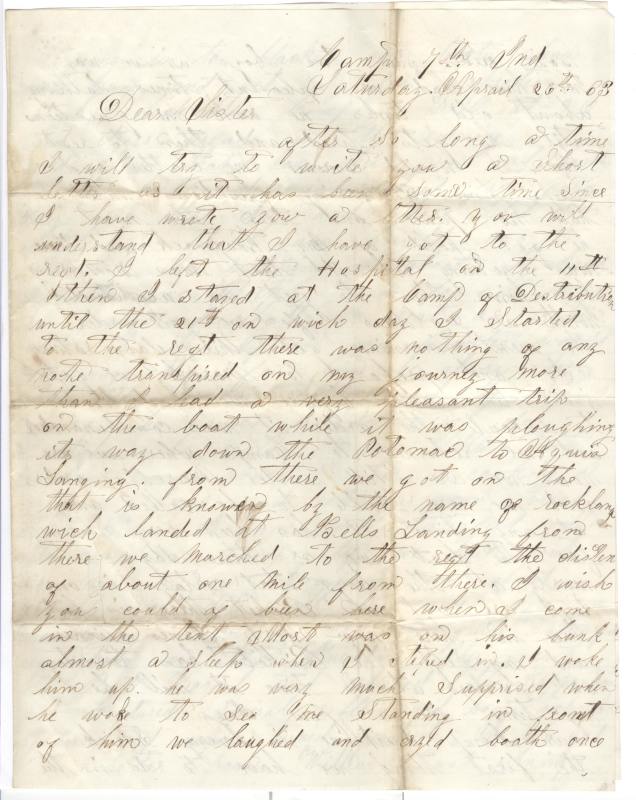 Camp 7th Ind
Saturday. Aprail 25th 63
Dear Sister
after so long a time
I will try to write you a Short
letter as it has been some time since
I have wrote you a letter. you will
understand that I have got to the
regt. I left the Hospital on the 11th
then I stayed at the Camp of Distribution
until the 21st on wich day I Started
to the regt there was nothing of any
note transpired on my journey more
than I had a very pleasant trip
on the boat while it was ploughing
its way down the Potomac to Aquia
Langing. from there we got on the
that is knowen by the name of rockland
wich landed at Bells Landing from
there we Marched to the regt the disten
of about one Mile from there. I wish
you could of been here when I come
in the tent was on his bunk
almost a sleep when I steped in. I woke
him up. he was very much Supprised when
he woke to See me Standing in front
of him we laughed and cryed boath once